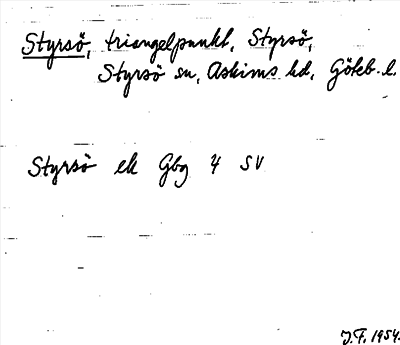 Styrsö, triangelpunkt, Styrsö,
Styrsö sn, Askims hd, Göteb. l.
Styrsö ek Gbg 4 SV
J.F. 1954.